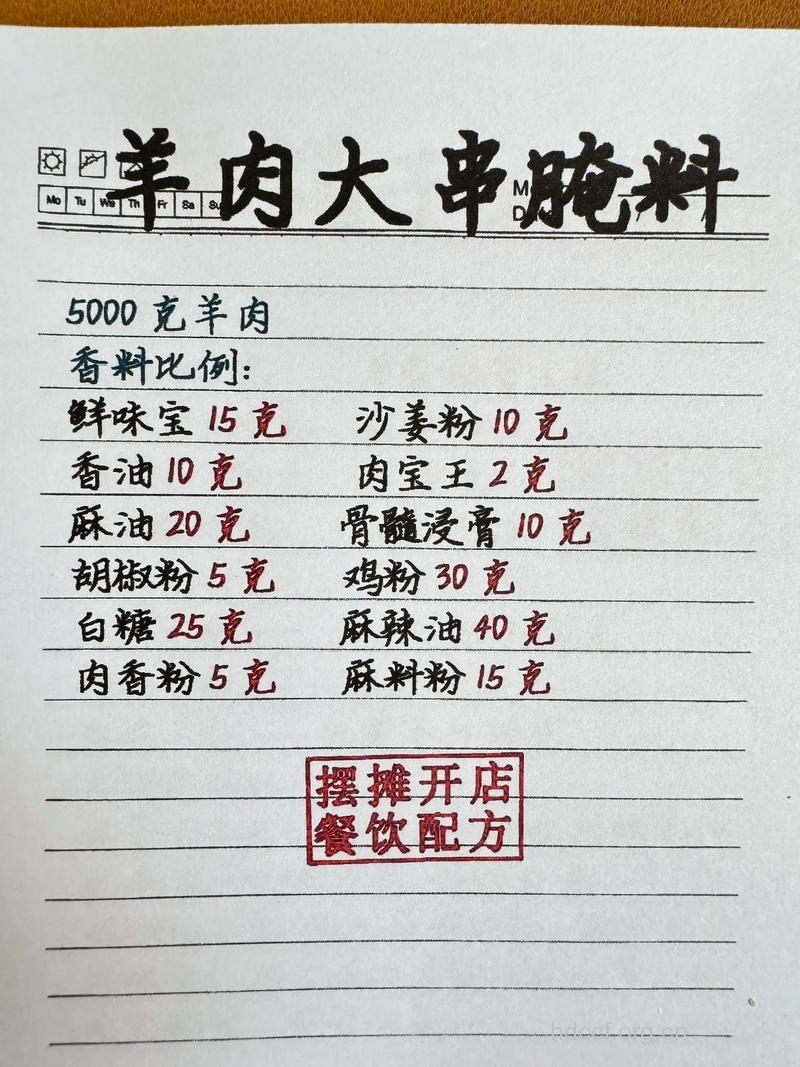 羊肉大串腌料
Mo Tu We Th Fr Sa Su
5000克羊肉
香料比例:
鲜味宝15克 沙姜粉10克
香油10克 肉宝王2克
麻油20克 骨髓浸膏10克
胡椒粉5克 鸡粉30克
白糖25克 麻辣油40克
肉香粉5克 麻料粉15克
摆摊开店
餐饮配方